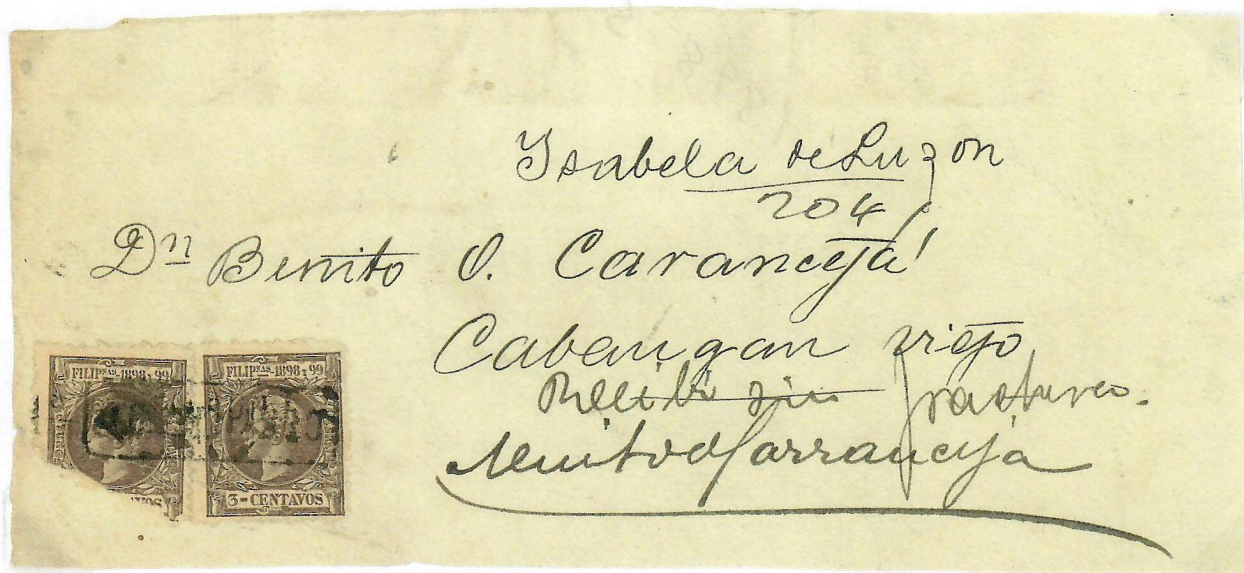 Isabela de Luzon
204
Dn Benito O. Caranceja
Cabangan viejo
Recibi sin fractura.
Benito O Carranceja
FILIPNAS. 1898 Y 99
FILIPNAS. 1898 Y 99
3-CENTAVOS